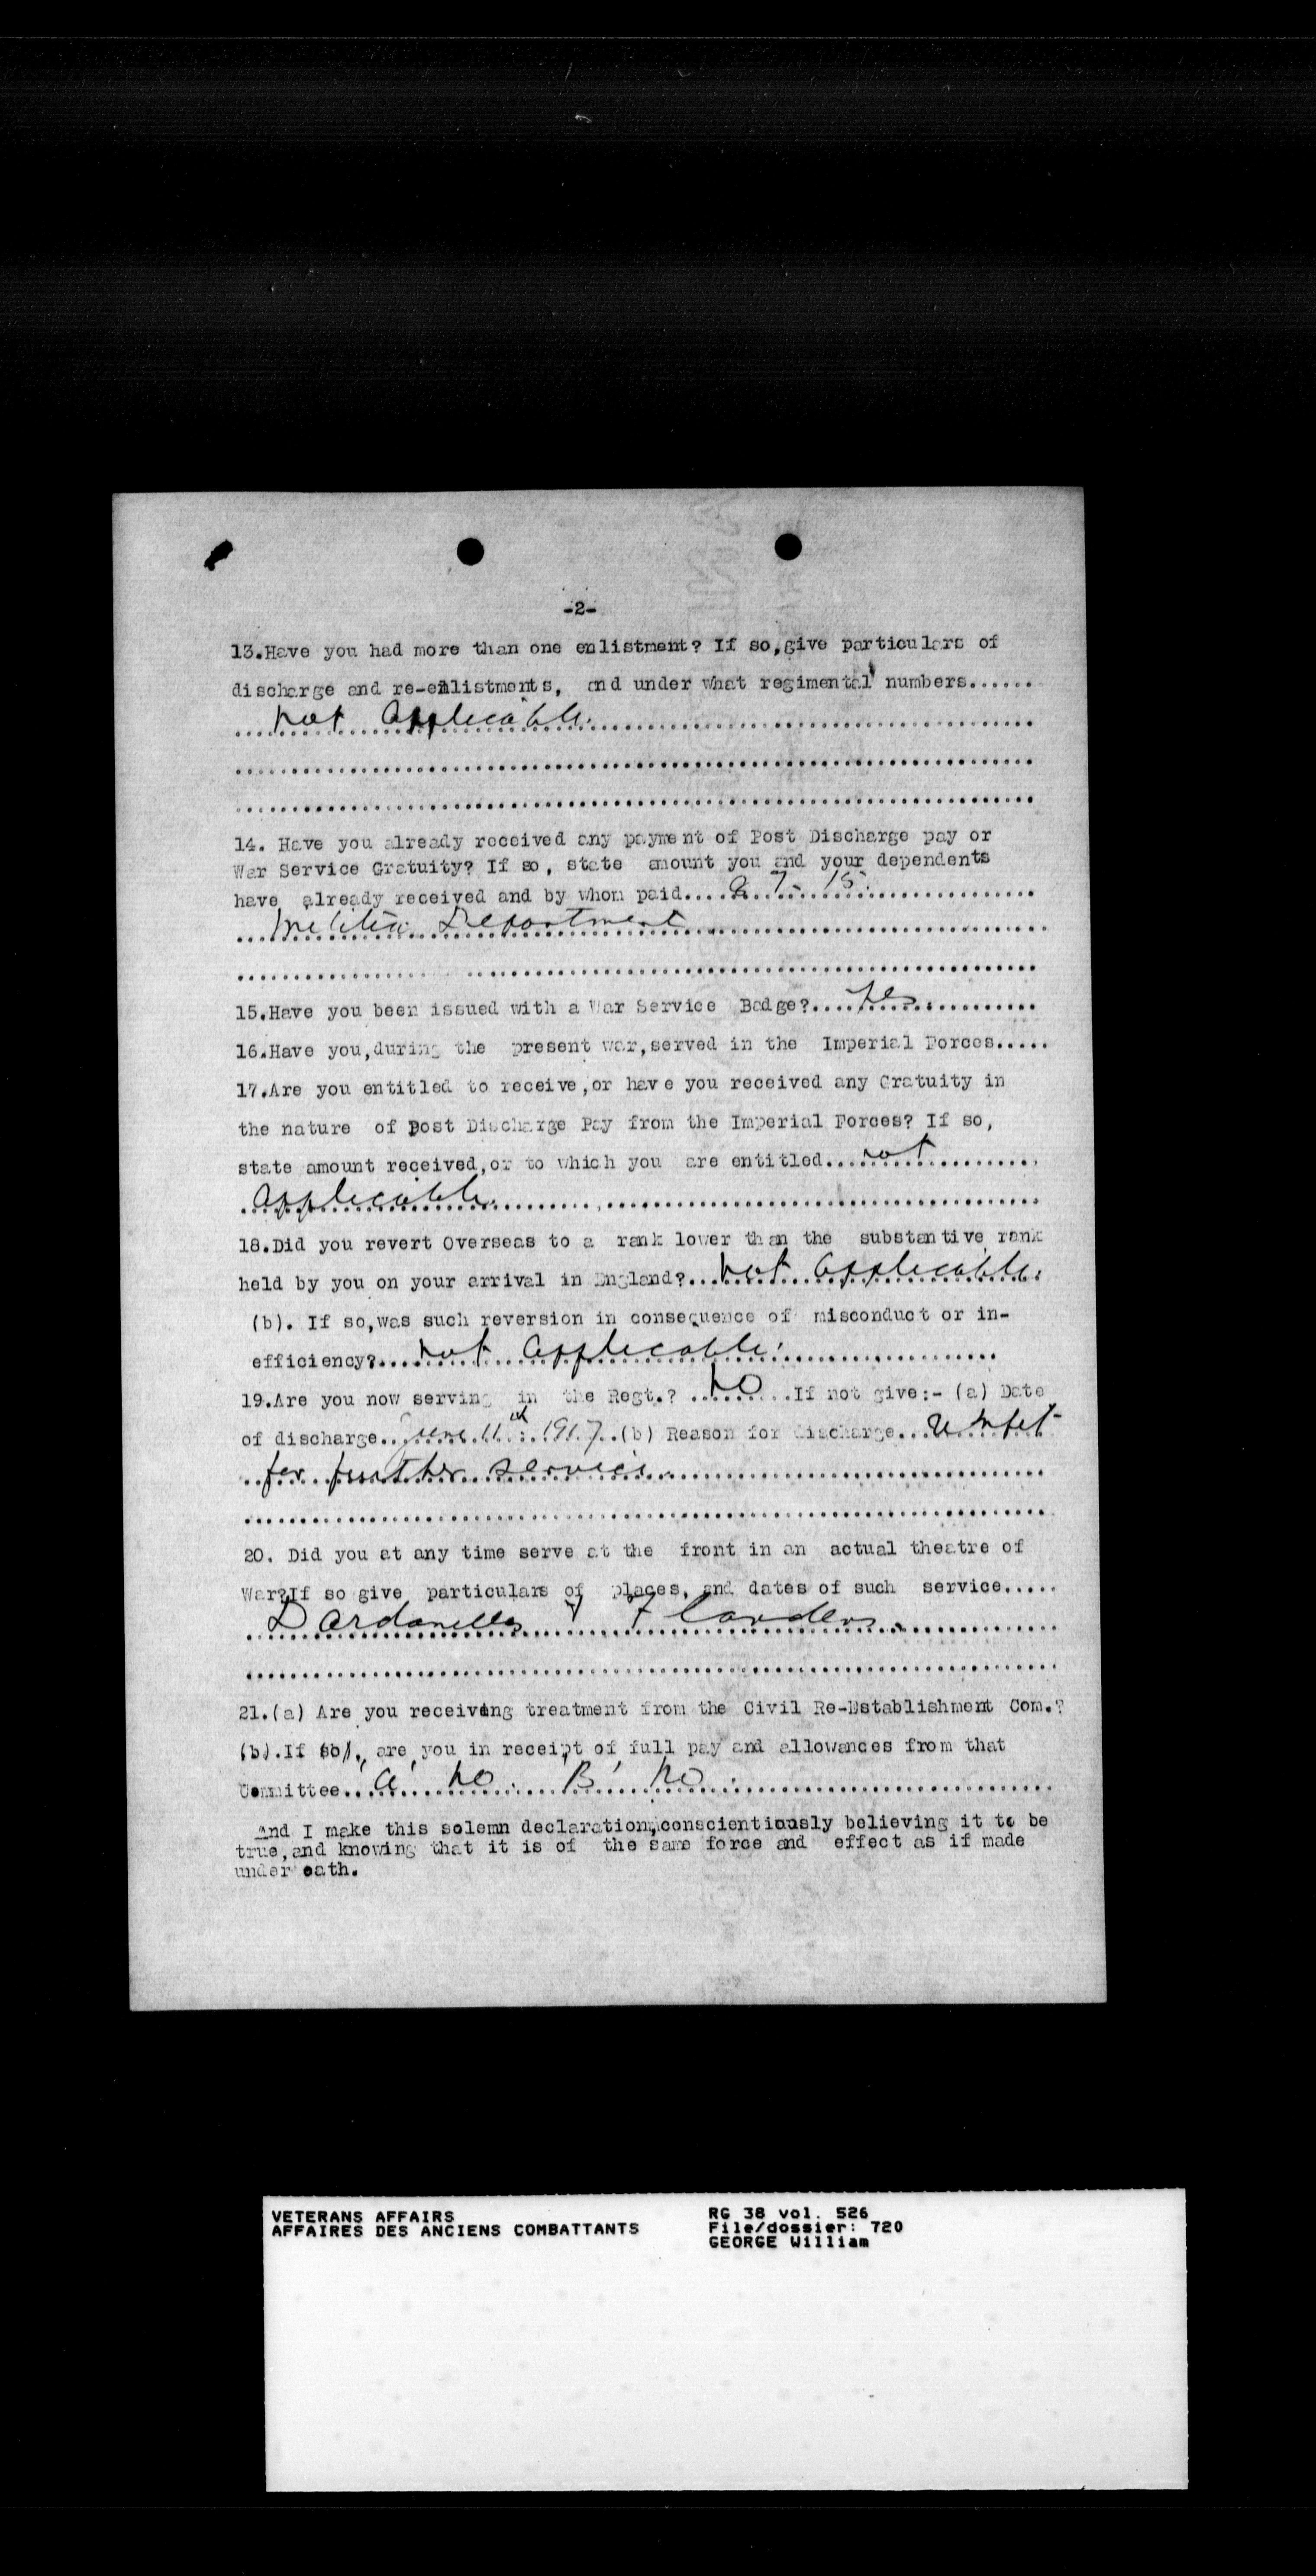 -2-
13.Have you had more than one enlistment? If so,give particulars of
discharge and re-enlistments, and under what regimental numbers......
not applicable.
14. Have you already received any payment of Post Discharge pay or
War Service Gratuity? If so, state amount you and your dependents
have already received and by whom paid....
Militia Department
15.Have you been issued with a War Service Badge?....Yes.
16.Have you,during the present war,served in the Imperial Forces.....
17.Are you entitled to receive,or have you received any Gratuity in
the nature of Post Discharge Pay from the Imperial Forces? If so,
state amount received,or to which you are entitled....not
applicable.
18.Did you revert Overseas to a rank lower than the substantive rank
held by you on your arrival in England?...not applicable.
(b). If so,was such reversion in consequence of misconduct or in-
efficiency?....not applicable.
19.Are you now serving in the Regt.? ..No.....If not give:- (a) Date
of discharge..June 11th 1917..(b) Reason for discharge...Unfit
for further service.
20. Did you at any time serve at the front in an actual theatre of
War?If so give particulars of places, and dates of such service.....
Dardanelles Flanders.
21.(a) Are you receiving treatment from the Civil Re-Establishment Com.?
(b).If so, are you in receipt of full pay and allowances from that
Committee..'a' No. 'B' No.
And I make this solemn declaration,conscientiously believing it to be
true,and knowing that it is of the same force and effect as if made
under oath.
VETERANS AFFAIRS
AFFAIRES DES ANCIENS COMBATTANTS
RG 38 vol. 526
File/dossier: 720
GEORGE William